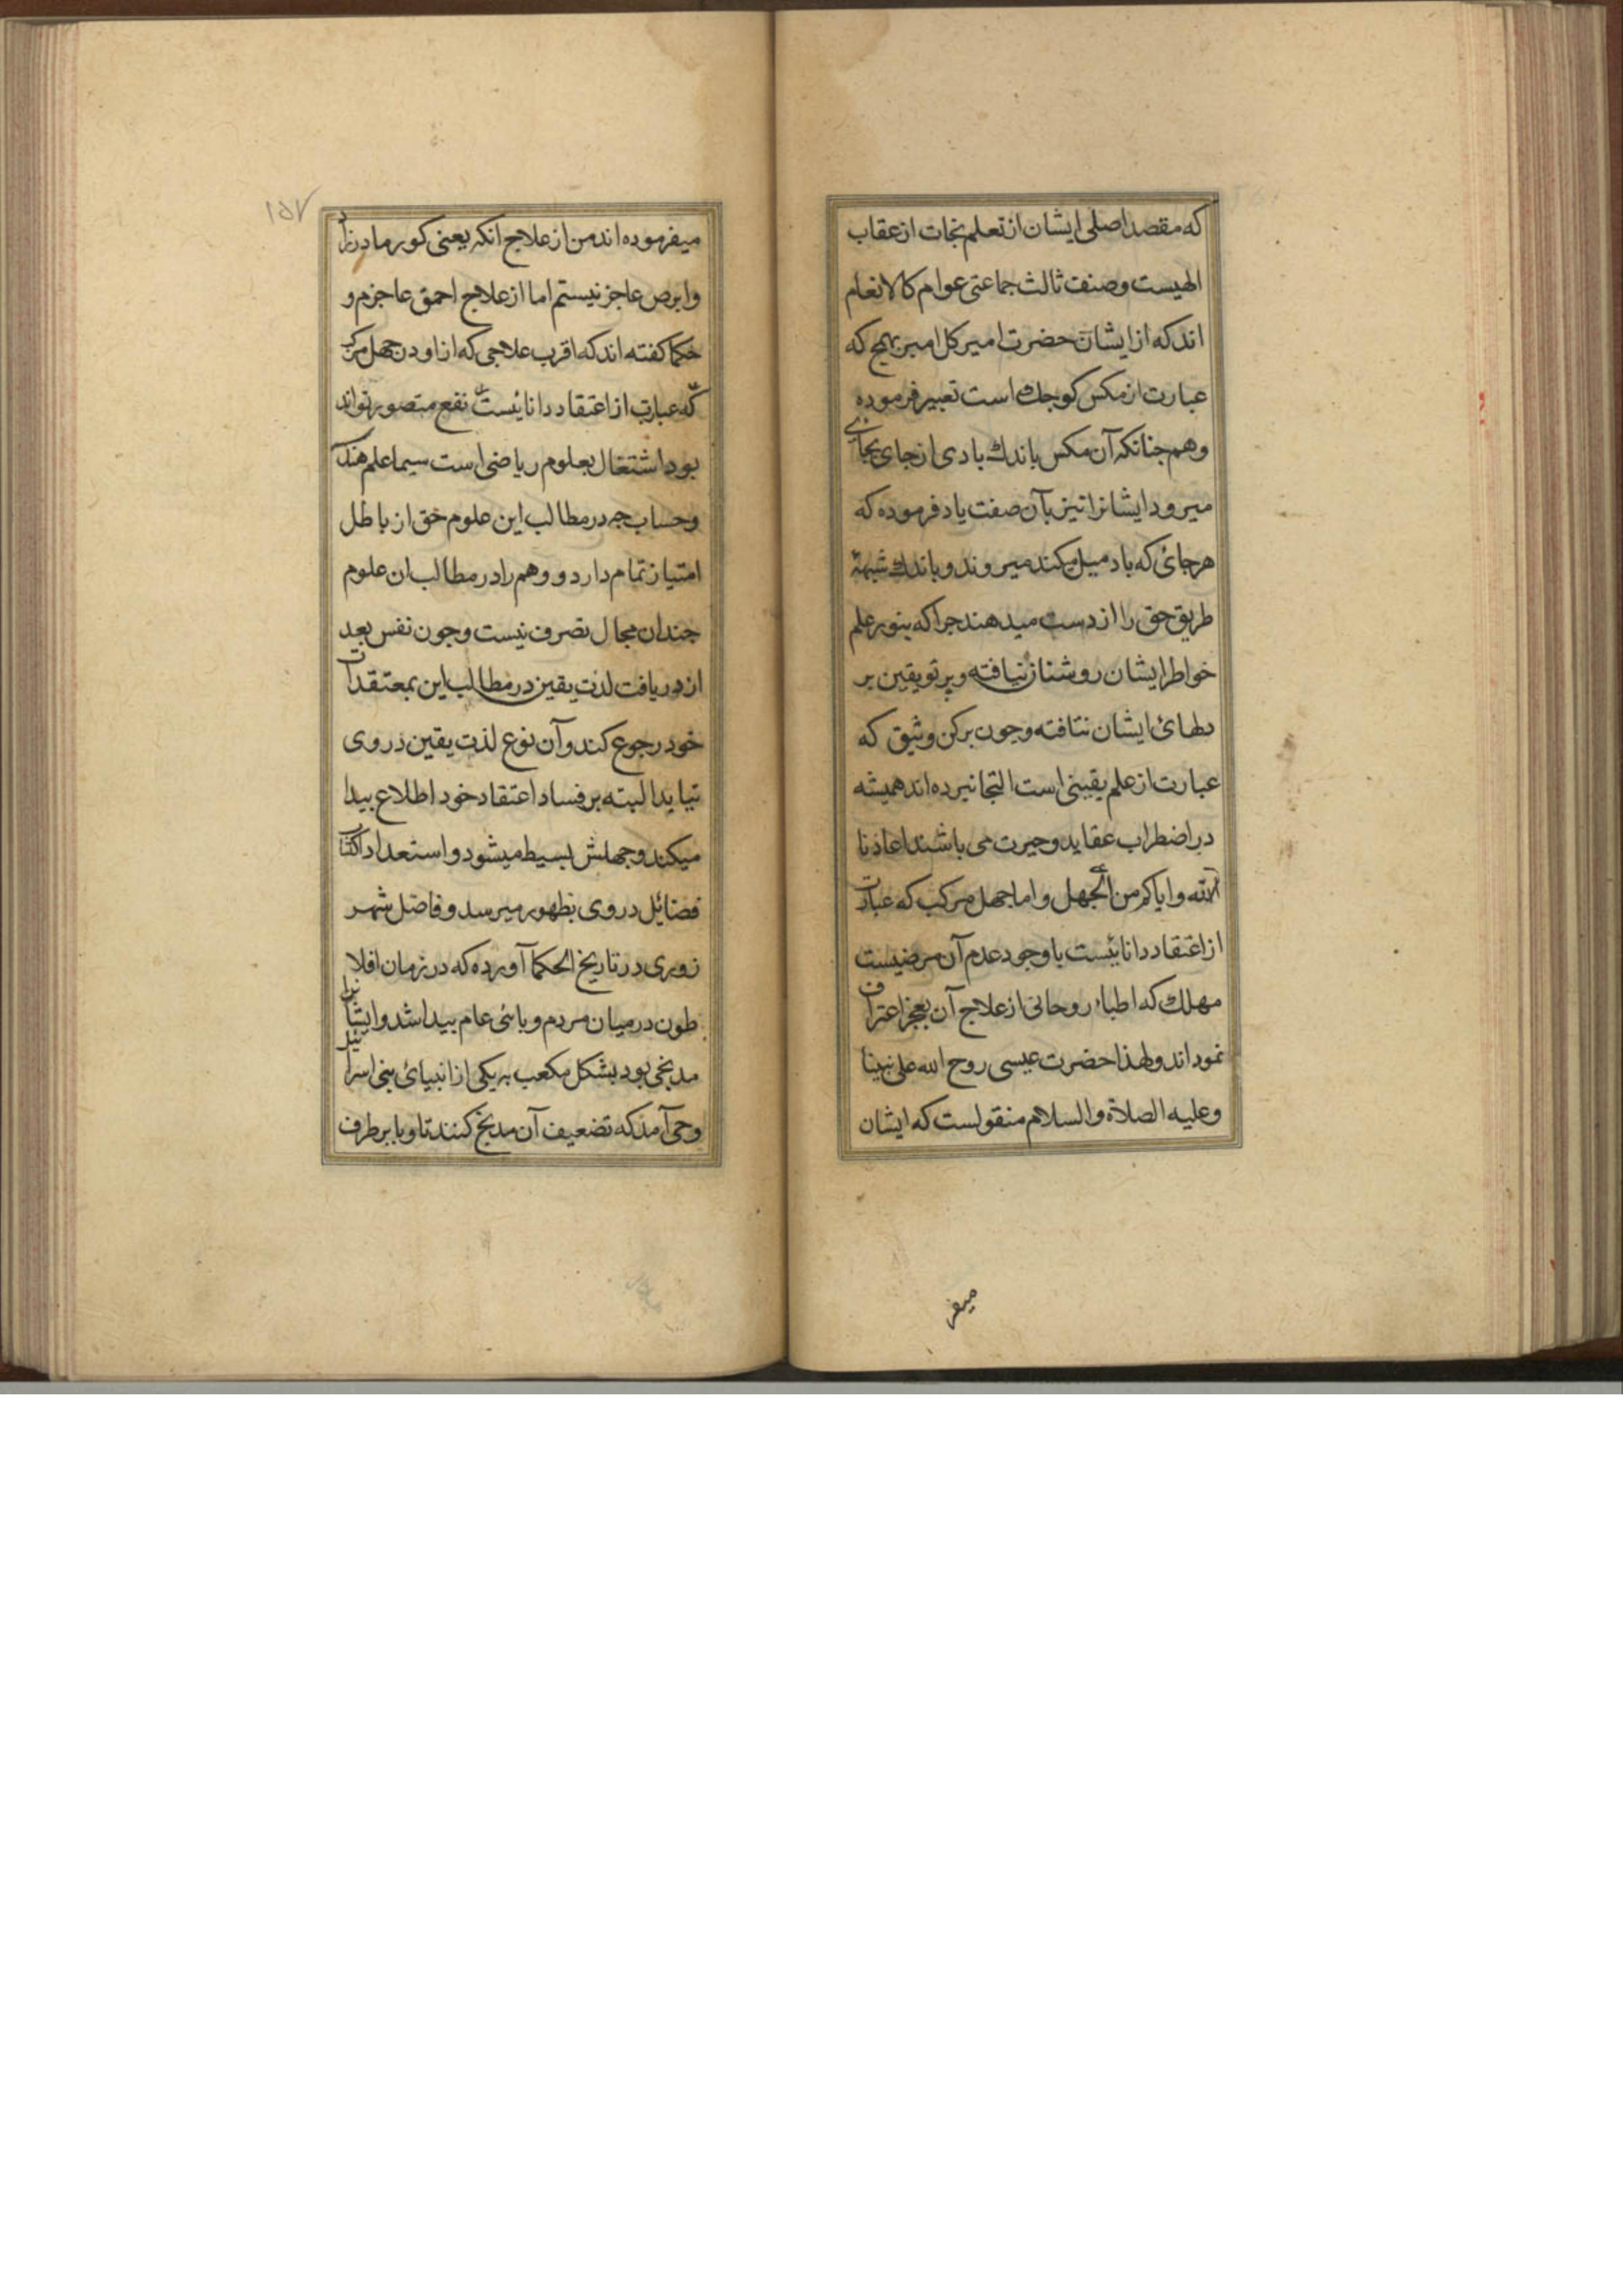 که مقصد اصلی ایشان از تعلم نجات از عقاب
الهیست و صنف ثالث جماعتی عوام کالانعام
اند که از ایشان حضرت امیر کل امیر بهمج که
عبارت از مکس کوجك است تعبیر فرموده
و هم جنانکه آن مکس باندك بادی از جای بجای
میرود ایشانرا نیز بآن صفت یاد فرموده که
هر جائ که باد میل میکند میروند و باندك شبهۀ
طریق حق را از دست میدهند جرا که بنور علم
خواطر ایشان روشنا نیافته و پرتو یقین بر
دلهائ ایشان نتافته و جون برکن وثیق که
عبارت از علم یقینی است التجا نبرده اند همیشه
در اضطراب عقاید و حیرت می باشند اعاذنا
الله و ایاکم من الجهل و اما جهل مرکب که عبارت
از اعتقاد دانائیست با وجود عدم آن مرضیست
مهلك که اطباء روحانی از علاج آن بعجز اعتراف
نمود اند و لهذا حضرت عیسی روح الله علی نبینا
و علیه الصلاة والسلام منقولست که ایشان
میفر
١٥٧
میفرموده اند من از علاج انکه یعنی کور مادرزاد
و ابرص عاجز نیستم اما از علاج احمق عاجزم و
حکما کفته اند که اقرب علاجی که از او در جهل مرکب
که عبارت از اعتقاد دانائیست نفع متصور تواند
بود اشتغال بعلوم ریاضی است سیما علم هندسه
و حساب جه در مطالب این علوم حق از باطل
امتیاز تمام دارد و وهم را در مطالب ان علوم
جندان مجال تصرف نیست و جون نفس بعد
از دریافت لذت یقین در مطالب این بمعتقدات
خود رجوع کند و آن نوع لذت یقین در وی
نیابد البته بر فساد اعتقاد خود اطلاع بیدا
میکند و جهلش بسیط میشود و استعداد اکتساب
فضائیل در وی بظهور میرسد و فاضل شهر
زوری در تاریخ الحکما آورده که در زمان افلا
طون در میان مردم وبائی عام بیدا شد و ایشانرا
مدبخی بود بشکل مکعب به یکی از انبیائ بنی اسرائیل
وحی آمد که تضعیف آن مدبخ کنند تا وبا بر طرف